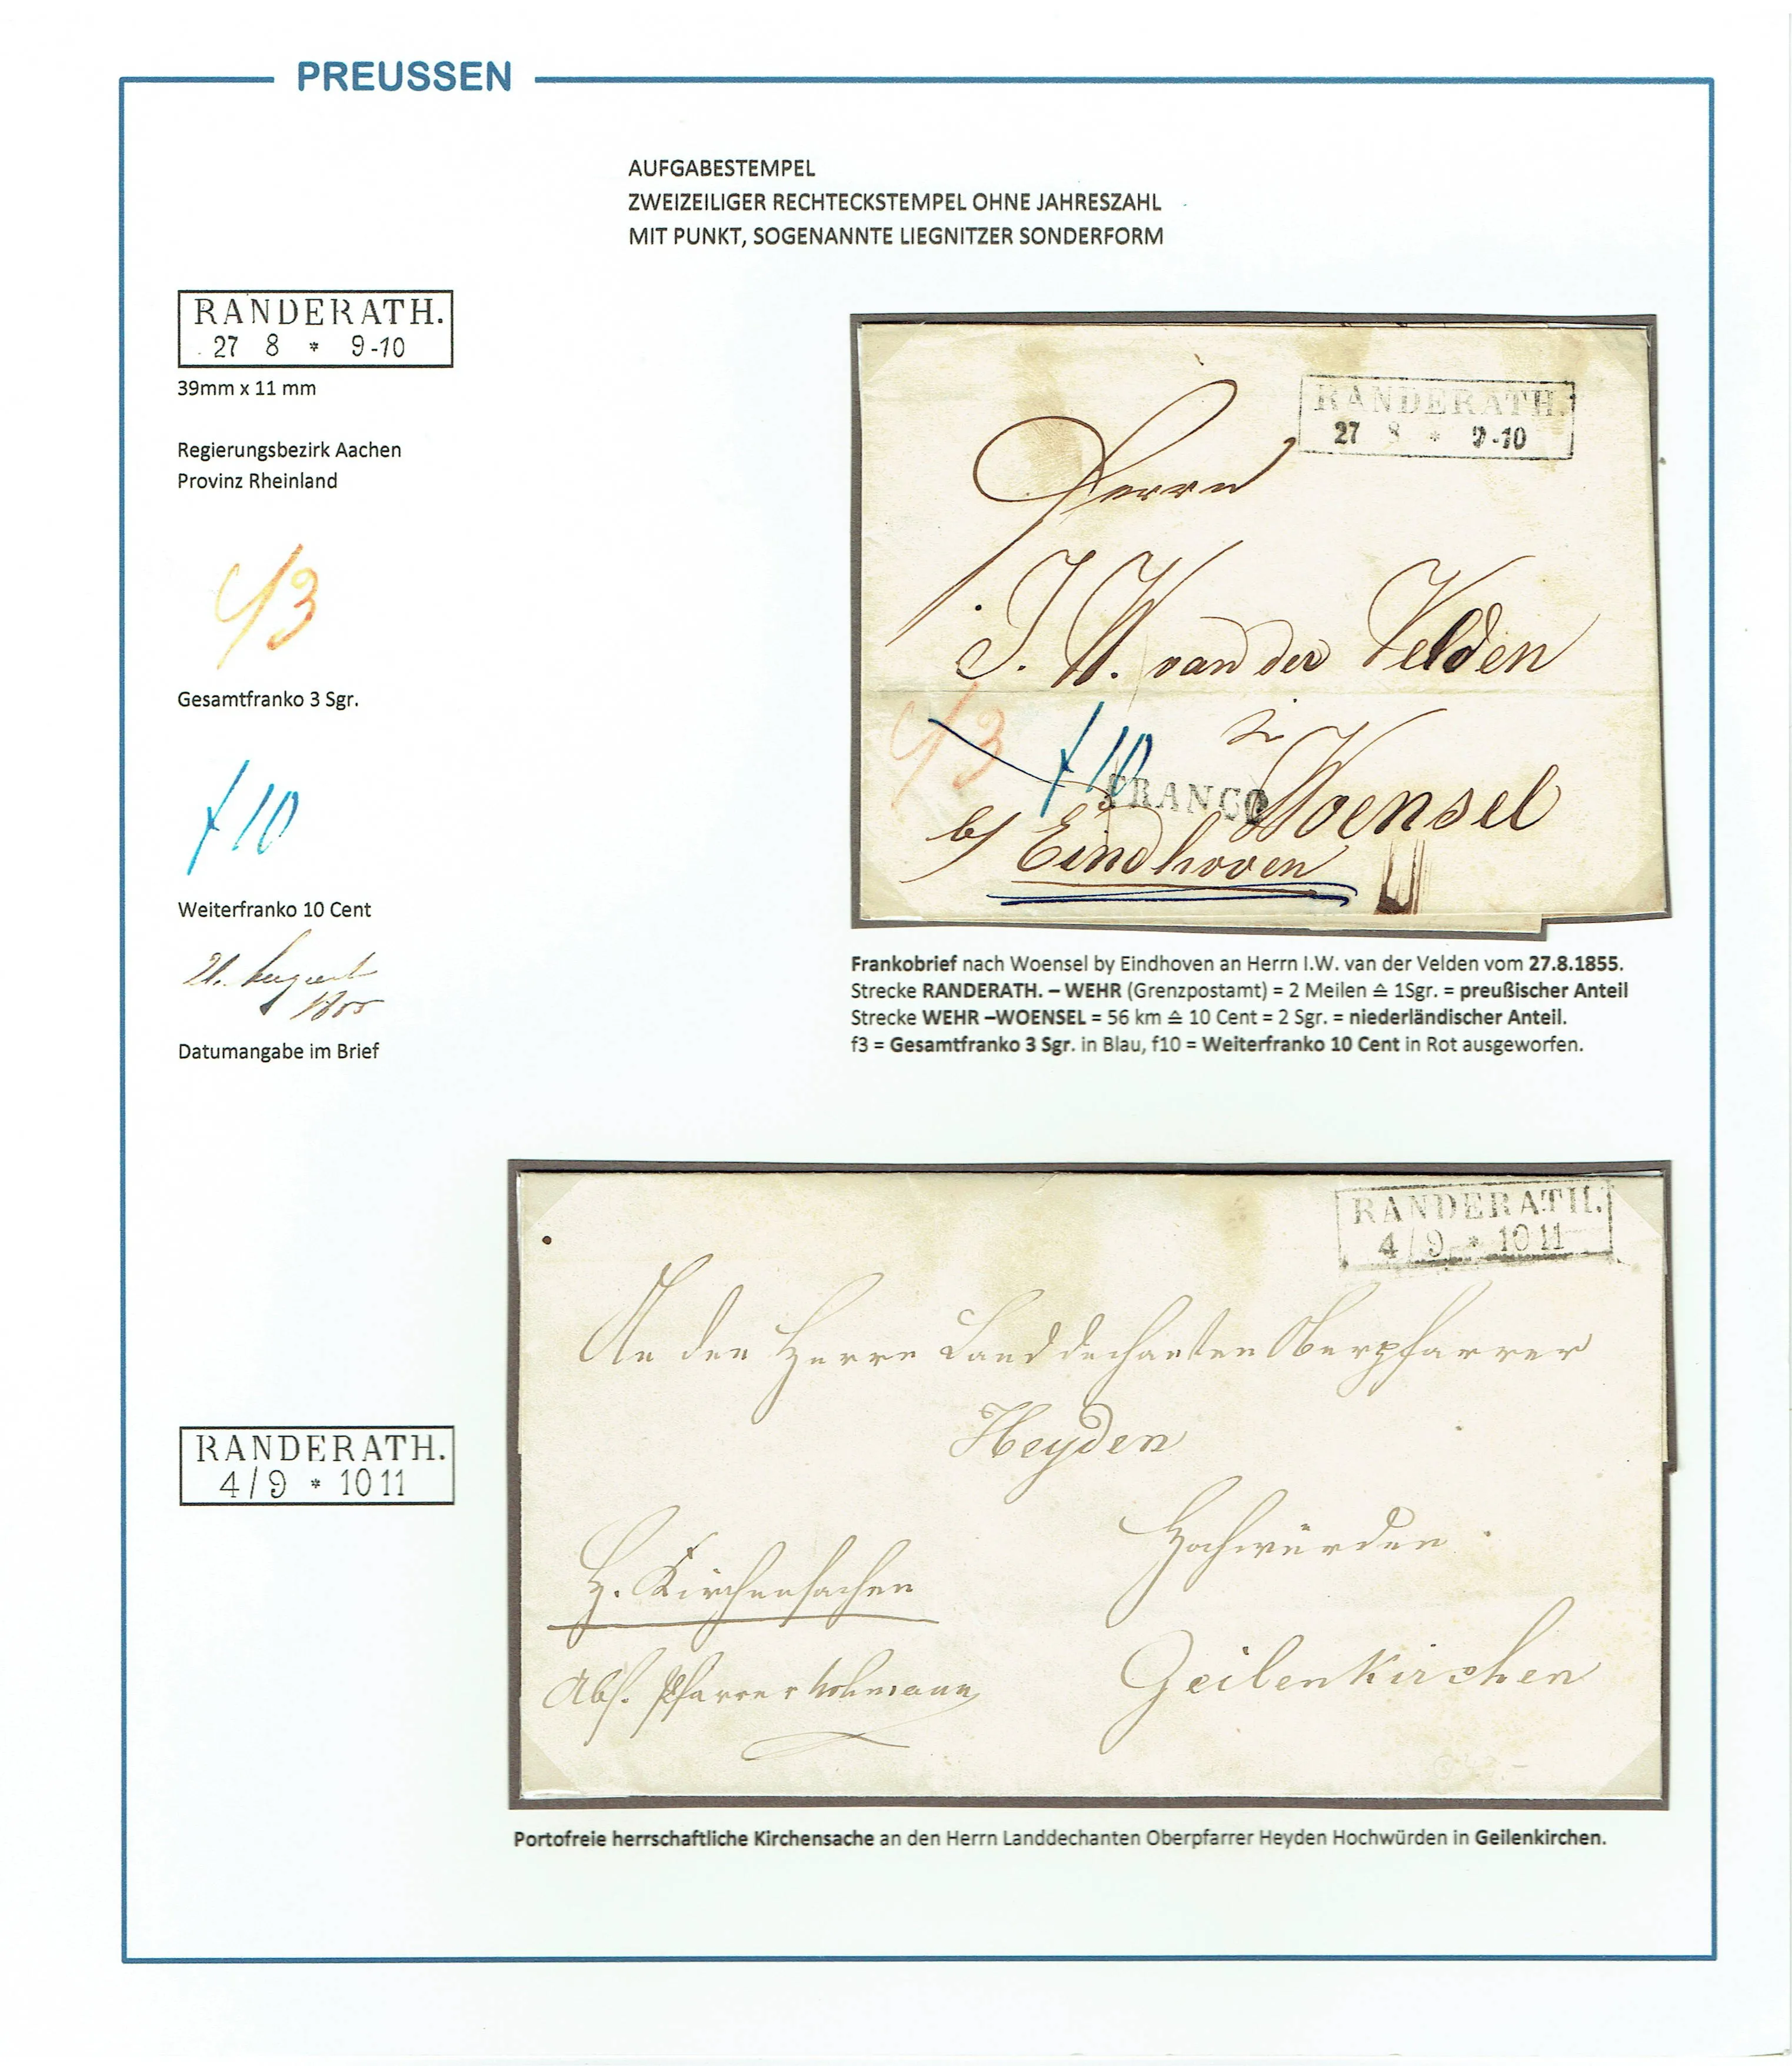 PREUSSEN
AUFGABESTEMPEL
ZWEIZEILIGER RECHTECKSTEMPEL OHNE JAHRESZAHL
MIT PUNKT, SOGENANNTE LIEGNITZER SONDERFORM
RANDERATH.
27 8 * 9-10
39mm x 11 mm
Regierungsbezirk Aachen
Provinz Rheinland
f3
Gesamtfranko 3 Sgr.
f10
Weiterfranko 10 Cent
August
Datumangabe im Brief
RANDERATH.
27 8 * 9-10
Herrn
J. W. van der Velden
f3
f10
FRANCO
Woensel
b/ Eindhoven
Frankobrief nach Woensel by Eindhoven an Herrn I.W. van der Velden vom 27.8.1855.
Strecke RANDERATH. – WEHR (Grenzpostamt) = 2 Meilen ≙ 1Sgr. = preußischer Anteil
Strecke WEHR –WOENSEL = 56 km ≙ 10 Cent = 2 Sgr. = niederländischer Anteil.
f3 = Gesamtfranko 3 Sgr. in Blau, f10 = Weiterfranko 10 Cent in Rot ausgeworfen.
RANDERATH.
4/9 * 10 11
RANDERATH.
4/9 * 10 11
An den Herrn Landdechanten Oberpfarrer
Heyden
Hochwürden
H. Kirchensachen
Geilenkirchen
Abs. Pfarrer
Portofreie herrschaftliche Kirchensache an den Herrn Landdechanten Oberpfarrer Heyden Hochwürden in Geilenkirchen.